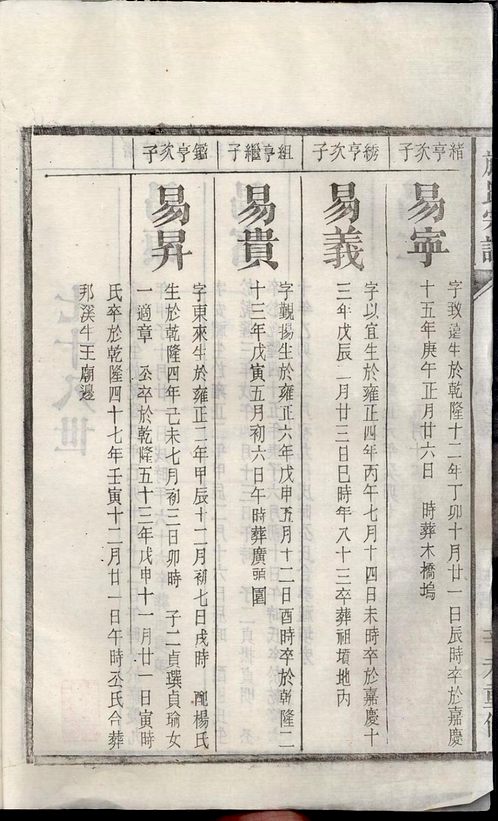 緒亨次子
易寧
字致遠生於乾隆十二年丁卯十月廿一日辰時卒於嘉慶
十五年庚午正月廿六日 時葬木橋塢
易義
字以宜生於雍正四年丙午七月十四日未時卒於嘉慶十
三年戊辰二月廿三日巳時年八十三卒葬祖墳地内
組亨繼子
易貴
字觀揚生於雍正六年戊申五月十二日酉時卒於乾隆二
十三年戊寅五月初六日午時葬廣頭園
鑑亨次子
易昇
字東來生於雍正二年甲辰十二月初七日戌時 配楊氏
生於乾隆四年己未七月初三日卯時 子二貞璞貞瑜女
一適章 丞卒於乾隆五十三年戊申十一月廿一日寅時
氏卒於乾隆四十七年壬寅十二月廿一日午時丞氏合葬
邦溪牛王廟邊